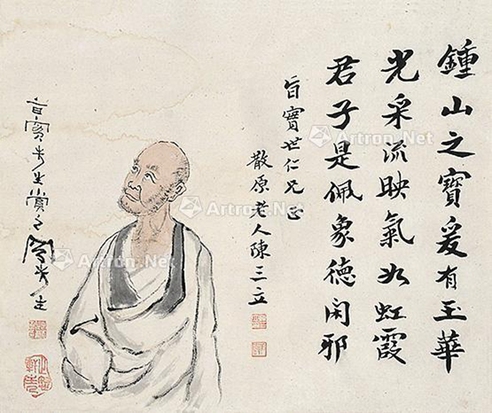 鍾山之寶爰有玉華
光采流映氣如虹霞
君子是佩象德閑邪
世仁兄正
散原老人陳三立
先生賞之
Artron.Net
Artron.Net
Artron.Net
Artron.Net
Artron.Net